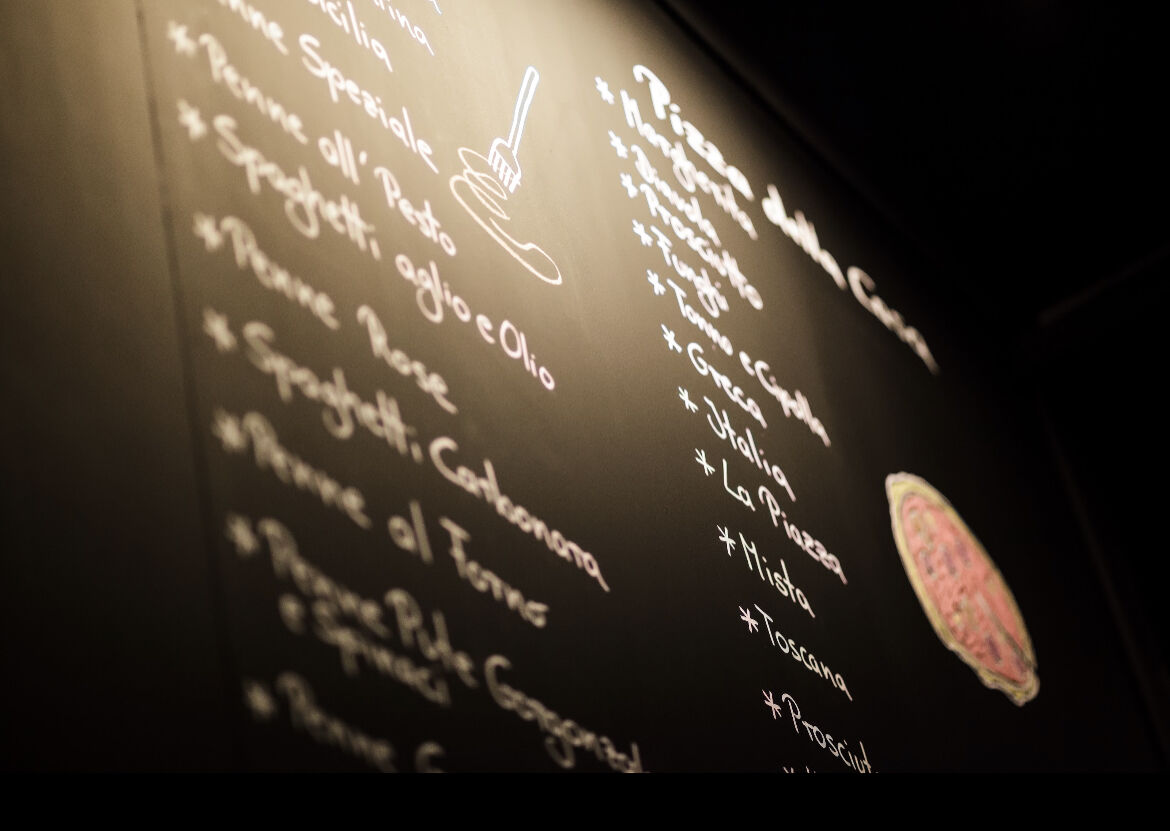 Sicilia
Speziale
* Penne all' Pesto
* Spaghetti aglio e Olio
* Penne Rose
* Spaghetti Carbonara
* Penne al Forno
* Penne Pute Gorgonzol
e Spinaci
* Penne
Pizza della Casa
* Margherita
* Diavola
* Prosciutto
* Funghi
* Tonno e Cipolla
* Greca
* Italia
* La Piazza
* Mista
* Toscana
* Prosciut